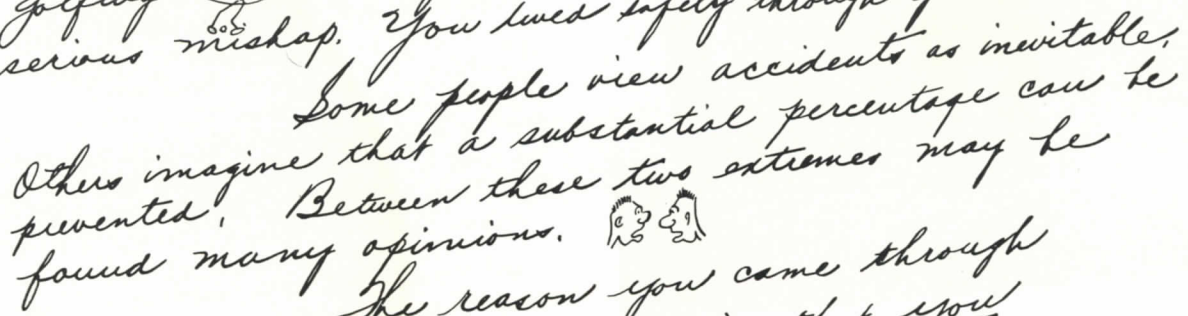 serious mishap. You lived safely through
Some people view accidents as inevitable.
Others imagine that a substantial percentage can be
prevented. Between these two extremes may be
found many opinions.
The reason you came through
you